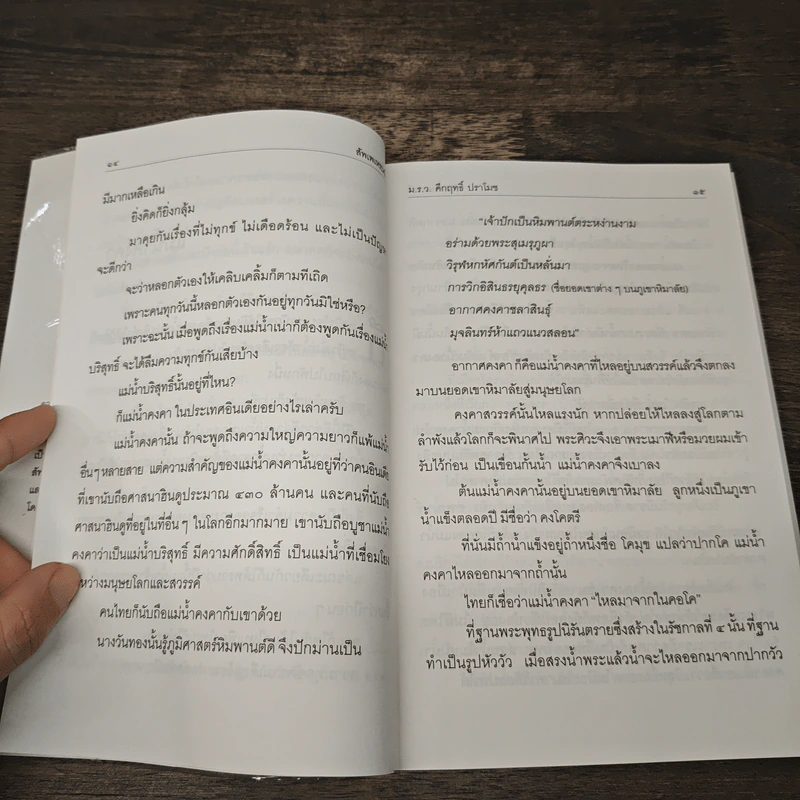 ๑๔
มีมากเหลือเกิน
ยิ่งคิดก็ยิ่งกลุ้ม
มาคุยกันเรื่องที่ไม่ทุกข์ ไม่เดือดร้อน และไม่เป็น
จะดีกว่า
จะว่าหลอกตัวเองให้เคลิบเคลิ้มก็ตามทีเถิด
เพราะคนทุกวันนี้หลอกตัวเองกันอยู่ทุกวันมิใช่หรือ?
เพราะฉะนั้น เมื่อพูดถึงเรื่องแม่น้ำเน่าก็ต้องพูดกันเรื่อง
บริสุทธิ์ จะได้ลืมความทุกข์กันเสียบ้าง
แม่น้ำบริสุทธิ์นั้นอยู่ที่ไหน?
ก็แม่น้ำคงคา ในประเทศอินเดียอย่างไรเล่าครับ
แม่น้ำคงคานั้น ถ้าจะพูดถึงความใหญ่ความยาวก็แพ้
อื่นๆ หลายสาย แต่ความสำคัญของแม่น้ำคงคานั้นอยู่ที่ว่าคน
ที่เขานับถือศาสนาฮินดูประมาณ ๔๓๐ ล้านคน และคนที่นับถือ
ศาสนาฮินดูที่อยู่ในที่อื่นๆ ในโลกอีกมากมาย เขานับถือบูชา
คงคาว่าเป็นแม่น้ำบริสุทธิ์ มีความศักดิ์สิทธิ์ เป็นแม่น้ำที่
หว่างมนุษยโลกและสวรรค์
คนไทยก็นับถือแม่น้ำคงคากับเขาด้วย
นางวันทองนั้นรู้ภูมิศาสตร์หิมพานต์ดี จึงปักม่านเป็น
ม.ร.ว. คึกฤทธิ์ ปราโมช
๑๕
"เจ้าปักเป็นหิมพานต์ตระหง่านงาม
อร่ามด้วยพระสุเมรุภูผา
วิรุฬหกหัศกันต์เป็นหลั่นมา
การวิกอิสินธรยุคุลธร (ชื่อยอดเขาต่าง ๆ บนภูเขาหิมาลัย)
อากาศคงคาชลาสินธุ์
มุจลินทร์ห้าแถวแนวสลอน"
อากาศคงคา ก็คือแม่น้ำคงคาที่ไหลอยู่บนสวรรค์แล้วจึงตกลง
มาบนยอดเขาหิมาลัยสู่มนุษยโลก
คงคาสวรรค์นั้นไหลแรงนัก หากปล่อยให้ไหลลงสู่โลกตาม
ลำพังแล้วโลกก็จะพินาศไป พระศิวะจึงเอาพระเมาฬีหรือมวยผมเข้า
รับไว้ก่อน เป็นเขื่อนกั้นน้ำ แม่น้ำคงคาจึงเบาลง
ต้นแม่น้ำคงคานั้นอยู่บนยอดเขาหิมาลัย ลูกหนึ่งเป็นภูเขา
น้ำแข็งตลอดปี มีชื่อว่า คงโคตรี
ที่นั่นมีถ้ำน้ำแข็งอยู่ถ้ำหนึ่งชื่อ โคมุข แปลว่าปากโค แม่น้ำ
คงคาไหลออกมาจากถ้ำนั้น
ไทยก็เชื่อว่าแม่น้ำคงคา "ไหลมาจากในคอโค"
ที่ฐานพระพุทธรูปนิรันตรายซึ่งสร้างในรัชกาลที่ ๔ นั้น ที่ฐาน
ทำเป็นรูปหัววัว เมื่อสรงน้ำพระแล้วน้ำจะไหลออกมาจากปากวัว